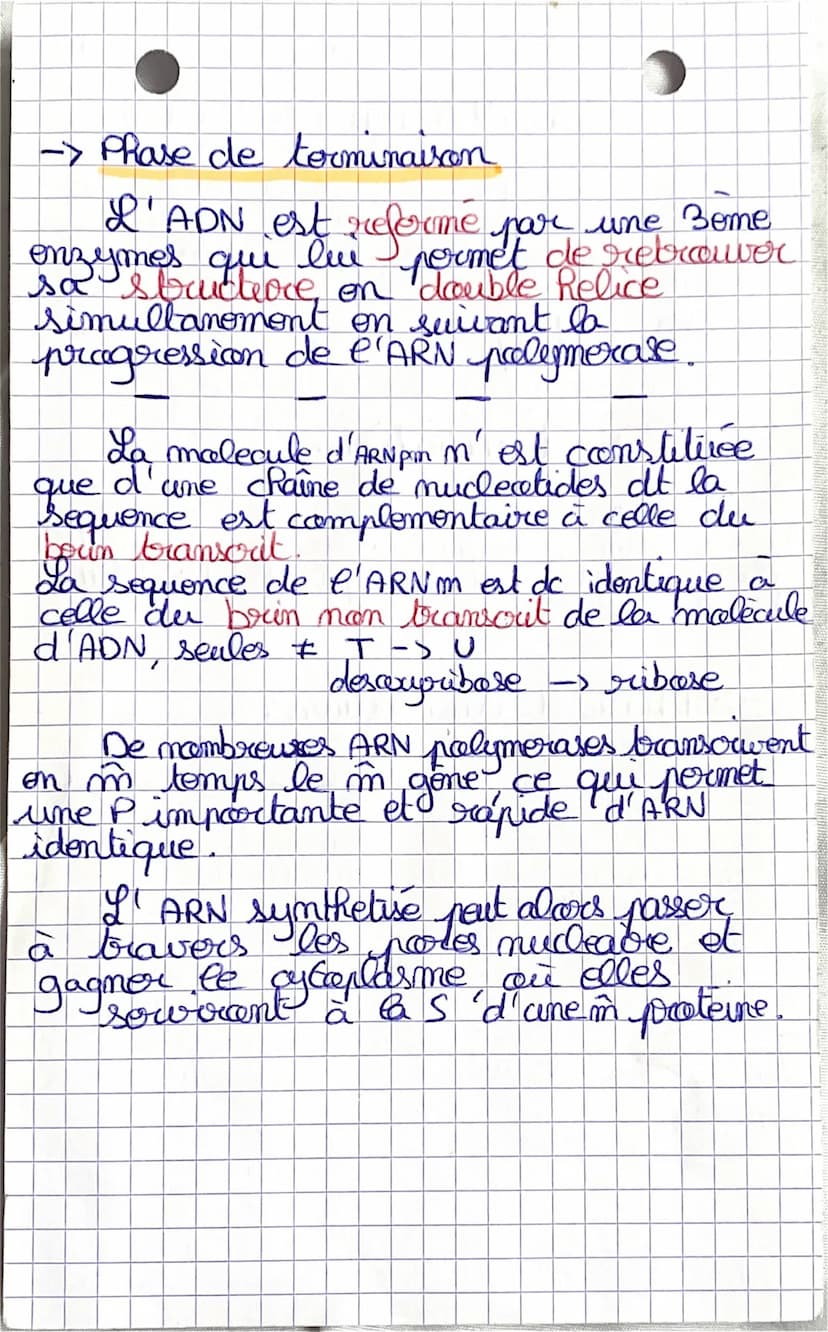 -> Phase de terminaison
L'ADN est refermé par une 3ème
enzymes qui lui permet de retrouver
sa structure en double helice
simultanement en suivant la
progression de l'ARN polymerase.
— — — —
La molecule d'ARNpm n'est constituée
que d'une chaîne de nucleotides dt la
sequence est complementaire à celle du
brin transcrit.
La sequence de l'ARNm est dc identique à
celle du brin non transcrit de la molècule
d'ADN, seules ≠ T -> U
desoxyribose -> ribose
De nombreuses ARN polymerases transcrivent
en m̂ temps le m̂ gène, ce qui permet
une P importante et rapide d'ARN
identique.
L'ARN synthetisé peut alors passer
à travers les pores nucleaire et
gagner le cytoplasme où elles
serviront à la S d'une m̂ proteine.